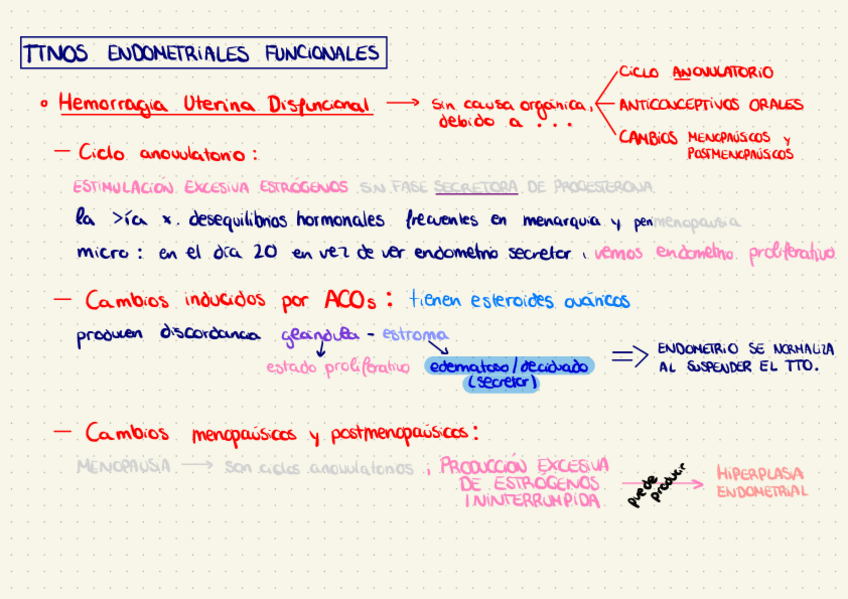 TTNOS ENDOMETRIALES FUNCIONALES
Hemorragia Uterina Disfuncional → sin causa orgánica, debido a ...
CICLO ANOVULATORIO
ANTICONCEPTIVOS ORALES
CAMBIOS MENOPAÚSICOS Y POSTMENOPAÚSICOS
— Ciclo anovulatorio:
ESTIMULACIÓN EXCESIVA ESTRÓGENOS SIN FASE SECRETORA DE PROGESTERONA
la >ía x. desequilibrios hormonales frecuentes en menarquia y perimenopausia
micro: en el día 20 en vez de ver endometrio secretor, vemos endometrio proliferativo.
— Cambios inducidos por ACOs: tienen esteroides ováricos
producen discordancia glándula - estroma
estado proliferativo
edematoso/deciduado
(secretor)
⇒ ENDOMETRIO SE NORMALIZA
AL SUSPENDER EL TTO.
— Cambios menopaúsicos y postmenopaúsicos:
MENOPAUSIA → son ciclos anovulatorios; PRODUCCIÓN EXCESIVA
DE ESTRÓGENOS
ININTERRUMPIDA
puede
producir
HIPERPLASIA
ENDOMETRIAL